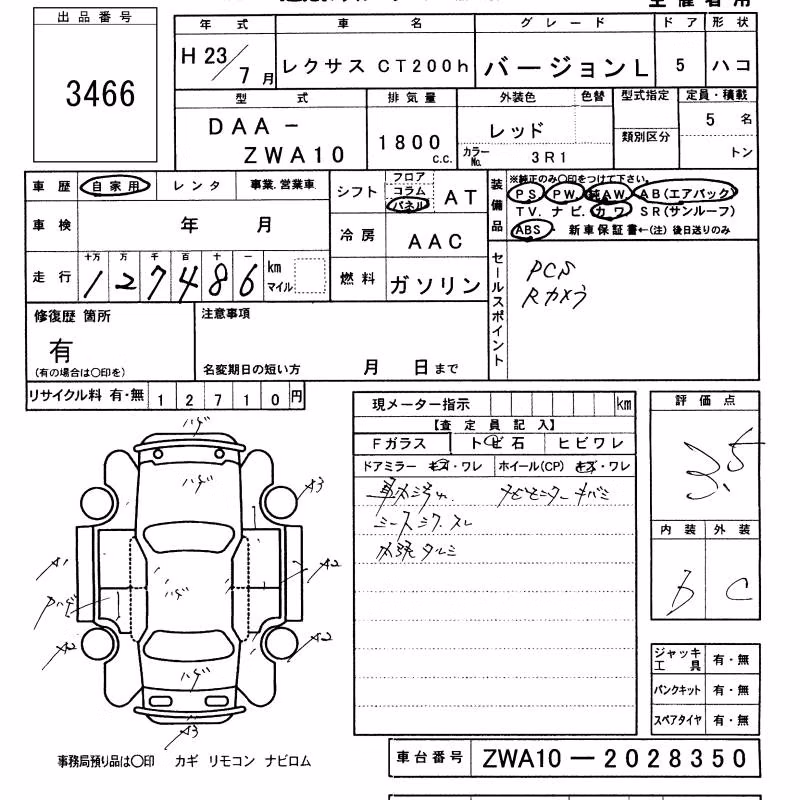 出品番号
3466
年式
H 23/7 月
車名
レクサス CT200h
グレード
バージョンL
ドア
5
形状
ハコ
型式
DAA－
ZWA10
排気量
1800
C.C.
外装色
レッド
色替
カラーNo.
3R1
型式指定
類別区分
定員・積載
5 名
トン
車歴
自家用
レンタ
事業.営業車
車検
年 月
走行
十万 万 千 百 十 一
1 2 7 4 8 6
km
マイル
シフト
フロア
コラム
パネル
AT
冷房
AAC
燃料
ガソリン
装備品
※純正のみ〇印をつけて下さい。
PS PW 純AW AB(エアバック)
TV. ナビ. カワ SR(サンルーフ)
ABS ・ 新車保証書←(注) 後日送りのみ
セールスポイント
PCS
Rカメラ
修復歴 箇所
有
(有の場合は〇印を)
注意事項
名変期日の短い方 月 日まで
リサイクル料 有・無 12710円
現メーター指示 km
【査定員記入】
Fガラス
トビ石
ヒビワレ
ドアミラー キズ・ワレ
ホイール(CP) キズ・ワレ
車内汚れ
シートシワ.スレ
内張タルミ
評価点
3.5
内装
b
外装
C
ハゲ
ハゲ
A3
A1
A2
ハゲ
A2
A2
ハゲ
A3
ジャッキ
工具
有・無
パンクキット
有・無
スペアタイヤ
有・無
事務局預り品は〇印 カギ リモコン ナビロム
車台番号
ZWA10－2028350